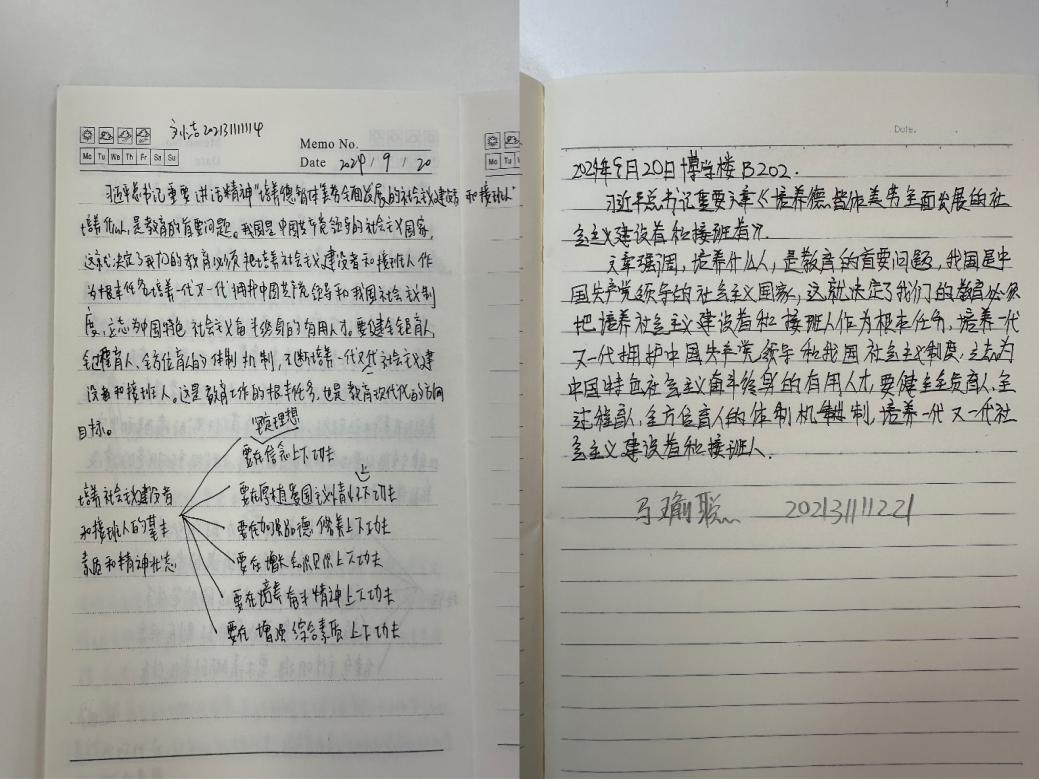 刘洁 202131111114
Memo No.
Mo Tu We Th Fr Sa Su
Date 2024 / 9 / 20
习近平总书记重要讲话精神"培养德智体美劳全面发展的社会主义建设者和接班人"
培养什么人,是教育的首要问题。我国是中国共产党领导的社会主义国家,
这就决定了我们的教育必须把培养社会主义建设者和接班人作
为根本任务,培养一代又一代拥护中国共产党领导和我国社会主义制
度,立志为中国特色社会主义奋斗终身的有用人才。要健全全员育人、
全过程育人、全方位育人的体制机制,不断培养一代又一代社会主义建
设者和接班人。这是教育工作的根本任务,也是教育现代化的方向
目标。
坚定理想
要在信念上下功夫
培养社会主义建设者
和接班人的基本
素质和精神状态
上
要在厚植爱国主义情怀下功夫
要在加强品德修养上下功夫
要在增长知识见识上下功夫
要在培养奋斗精神上下功夫
要在增强综合素质上下功夫
Mo Tu
Date.
2024年9月20日博学楼B202.
习近平总书记重要文章《培养德智体美劳全面发展的社
会主义建设者和接班者》.
文章强调,培养什么人,是教育的首要问题,我国是中
国共产党领导的社会主义国家,这就决定了我们的教育必须
把培养社会主义建设者和接班人作为根本任务,培养一代
又一代拥护中国共产党领导和我国社会主义制度,立志为
中国特色社会主义奋斗终身的有用人才,要健全全员育人,全
过程育人,全方位育人的体制机制,培养一代又一代社
会主义建设者和接班人.
马瑜聪 202131111221